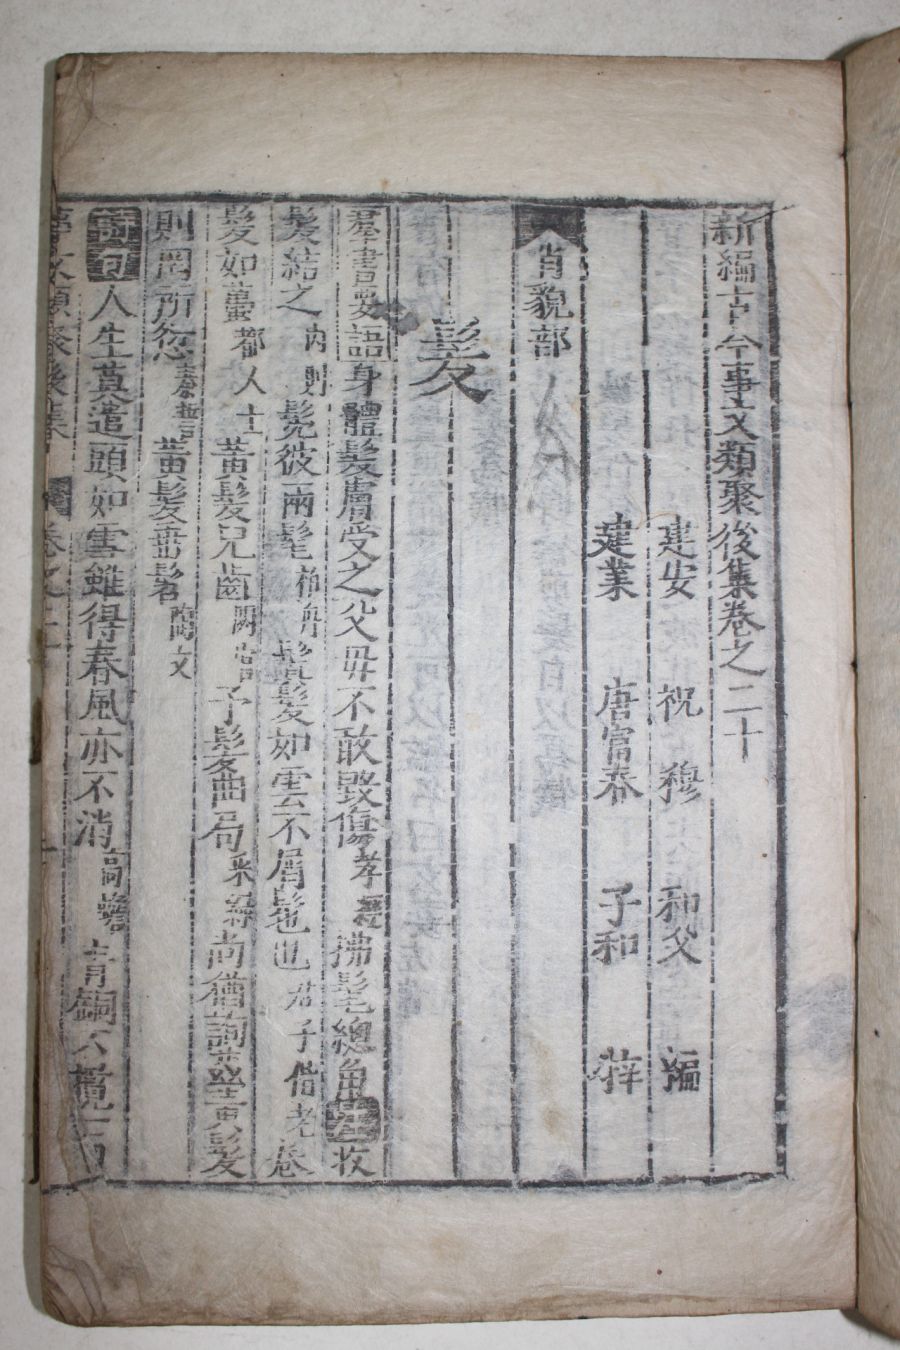 新編古今事文類聚後集卷之二十
建安 祝 穆 和父 編
建業 唐富春 子和 梓
肖貌部
髮
羣書要語身體髮膚受之父母不敢毀傷孝經拂髦總角註收
髮結之內則髧彼兩髦栢舟鬒髮如雲不屑髢也君子偕老卷
髮如蠆都人士黃髮兒齒閟宮予髮曲局采綠尚猶詢茲黃髮
則罔所愆秦誓黃髮垂髫陶文
人生莫遣頭如雪雖得春風亦不消高蟾青銅不